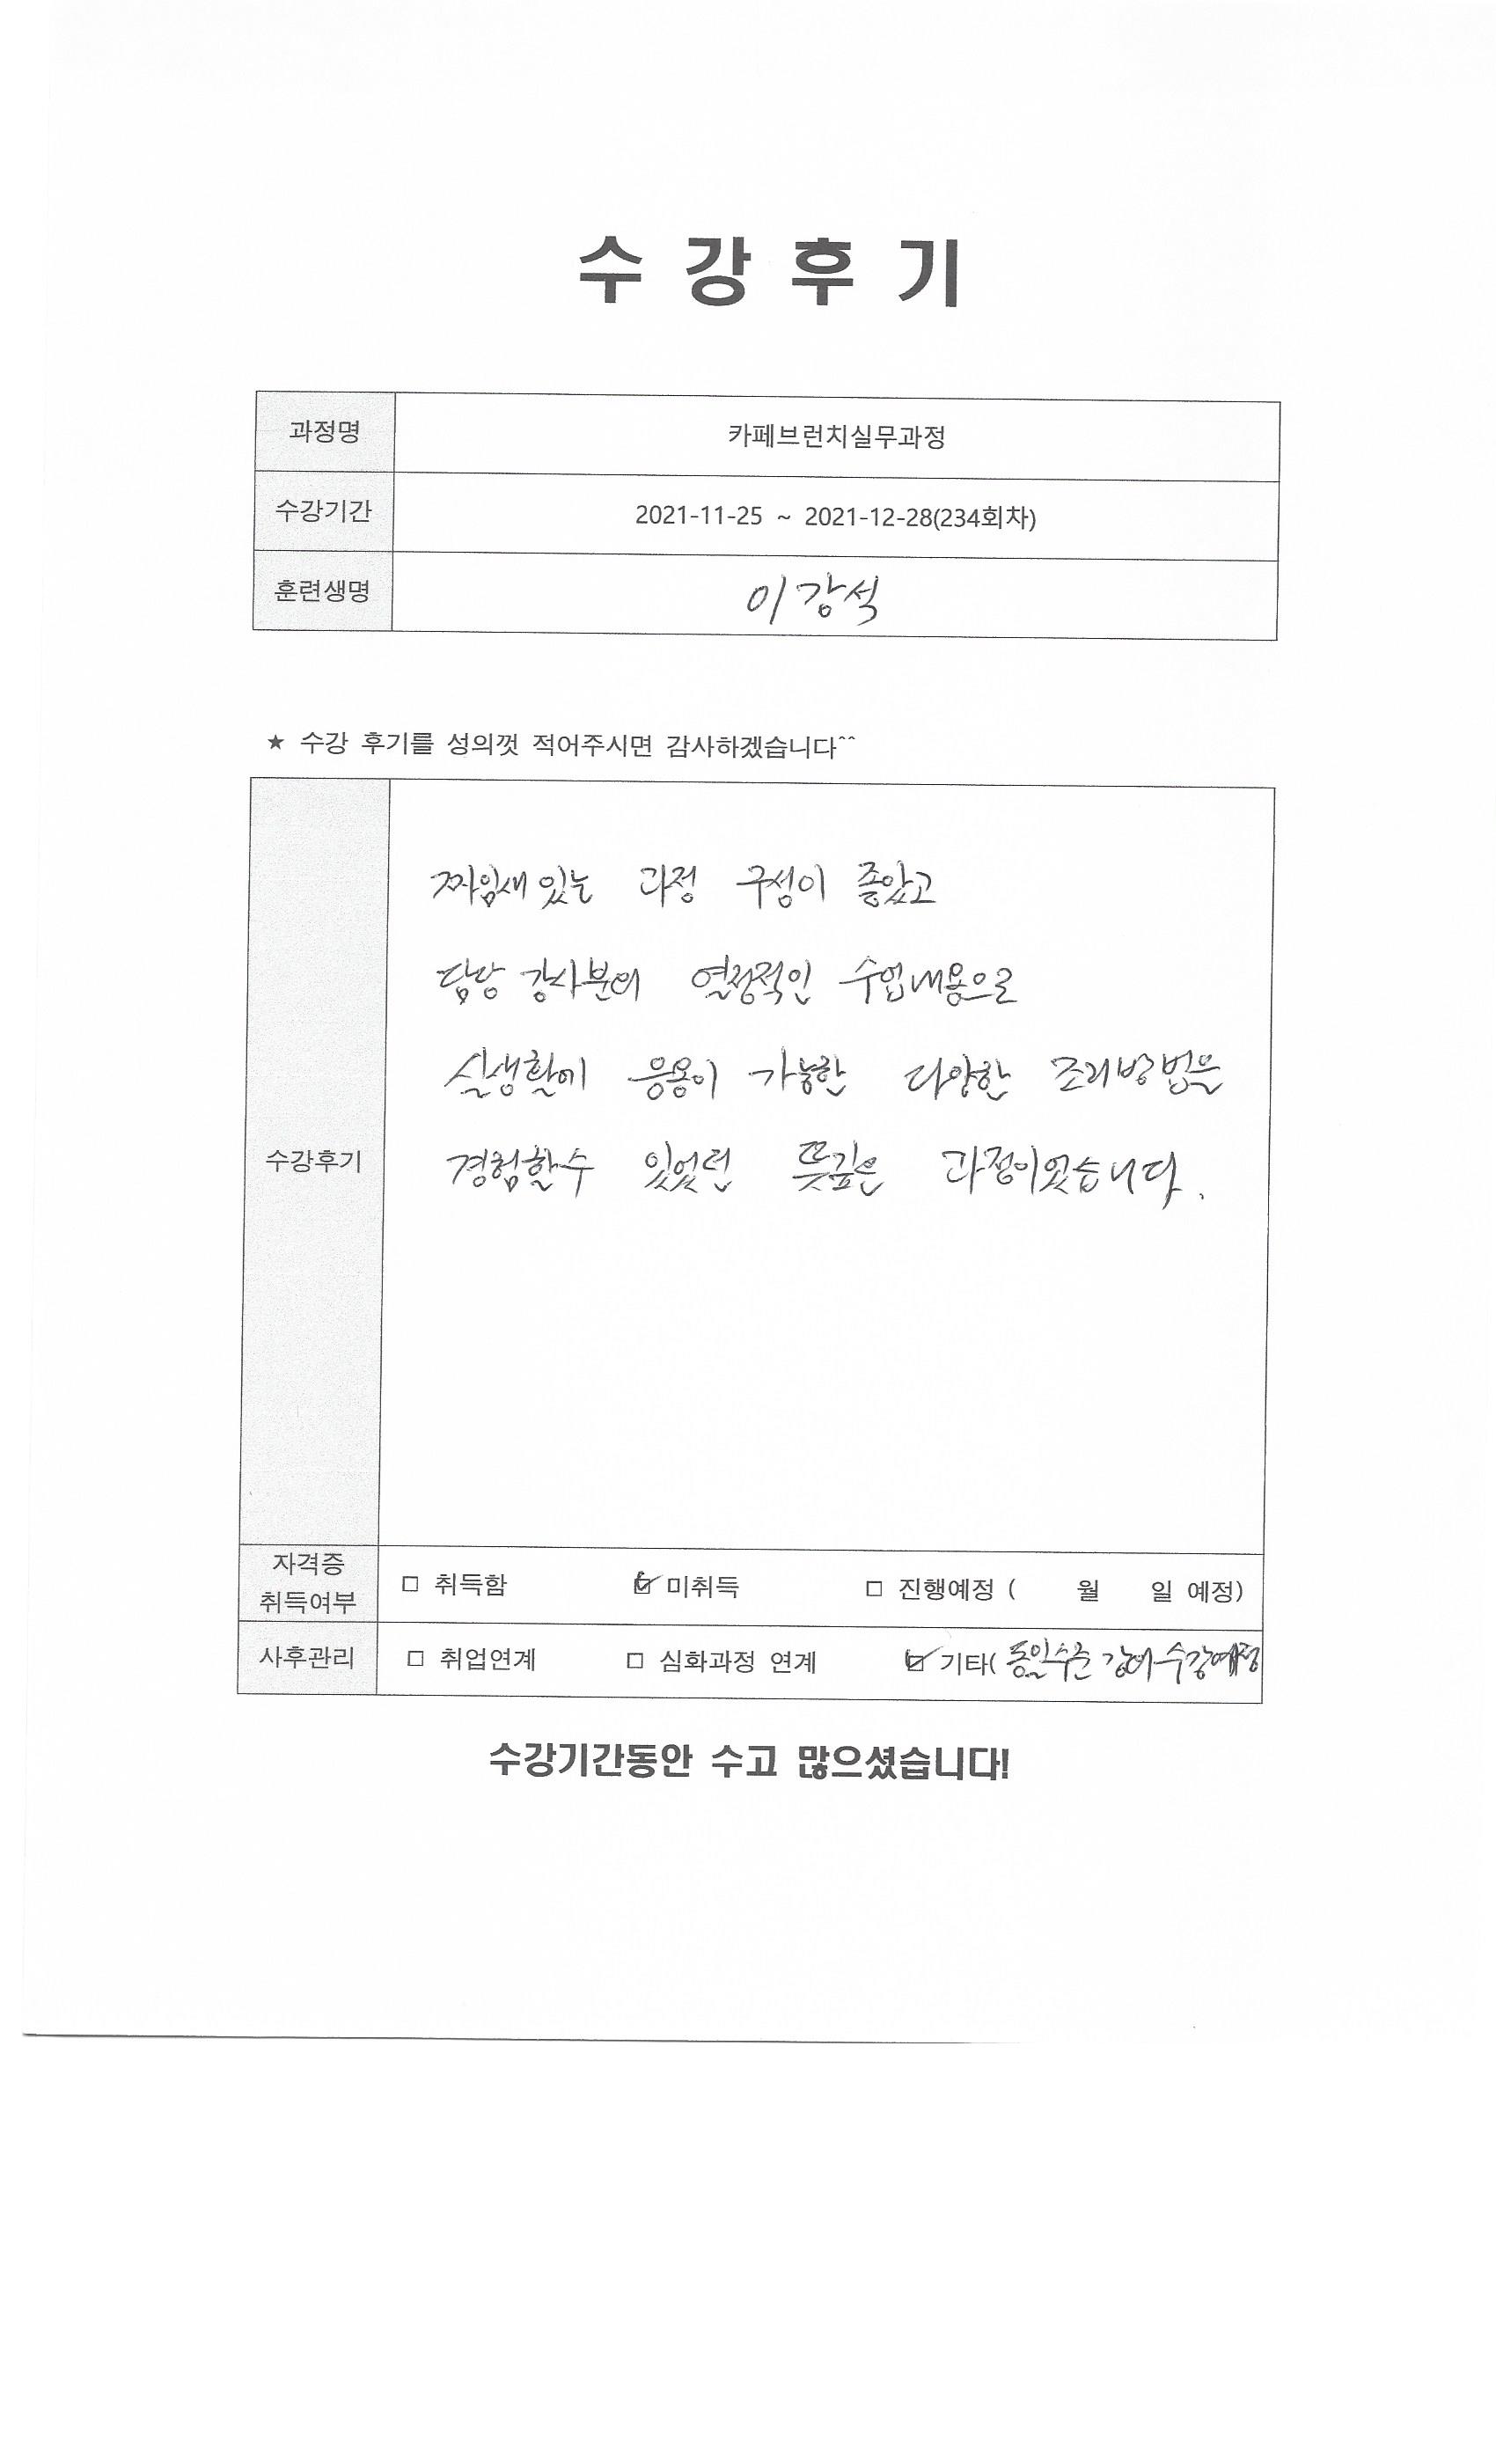 수 강 후 기
과정명 카페브런치실무과정
수강기간 2021-11-25 ~ 2021-12-28(234회차)
훈련생명 이강석
★ 수강 후기를 성의껏 적어주시면 감사하겠습니다^^
짜임새 있는 과정 구성이 좋았고
담당 강사분의 열정적인 수업내용으로
실생활에 응용이 가능한 다양한 조리방법을
수강후기
경험할수 있었던 뜻깊은 과정이었습니다.
자격증 취득여부 □ 취득함 ☑ 미취득 □ 진행예정 ( 월 일 예정)
사후관리 □ 취업연계 □ 심화과정 연계 ☑ 기타( 동일수준 강의 수강예정
수강기간동안 수고 많으셨습니다!